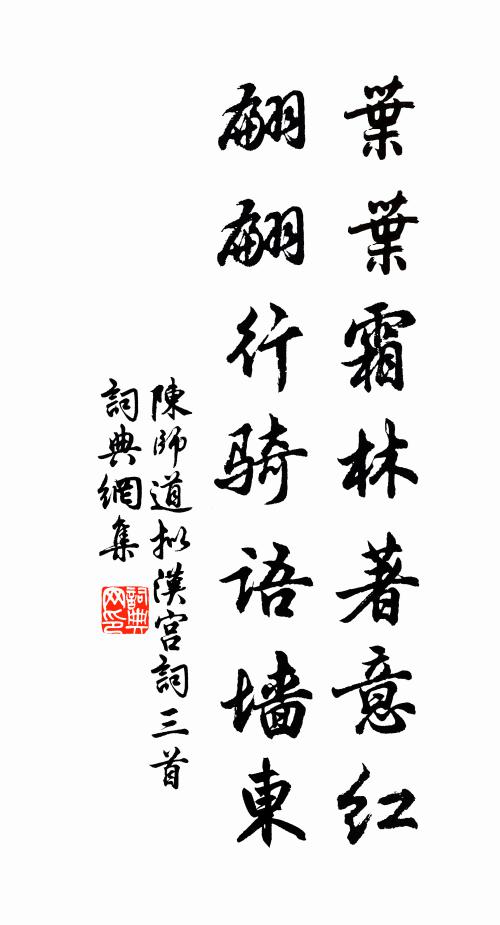 葉葉霜林著意紅
翩翩行骑语墙東
陳師道拟漢宫詞三首
詞典網集
詞典网印